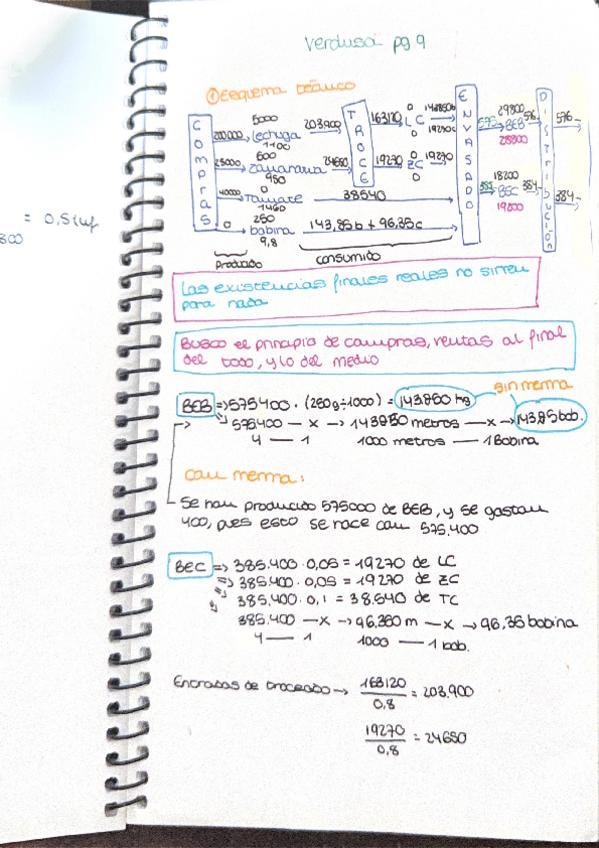 Verdusa pg 9
① Esquema teórico
= 0,5 luf
300
Compras
200000 5000 Lechuga 1100 203.900
25000 600 Zanahoria 950 24650
40000 0 Tomate 1460 38540
0 250 bobina 9,8 143,85b + 96,35c
Producto consumido
TROCE
163120 0 LC 0 143850b 19270c
19270 0 ZC 0 19270
ENVASADO
575 29800 BEB 28800 576
384 18200 BEC 19800 384
Distribución
576
384
Las existencias finales reales no sirven
para nada
Busco el principio de compras, ventas al final
del todo, y lo del medio
sin merma
BEB => 575400 · (250g÷1000) = 143.850 kg
575.400 — x → 143850 metros — x → 143,85 bob.
4 — 1 1000 metros — 1 Bobina
con merma:
Se han producido 575000 de BEB, y se gastan
400, pues esto se hace con 575.400
BEC => 385.400 · 0,05 = 19270 de LC
=> 385.400 · 0,05 = 19270 de ZC
385.400 · 0,1 = 38.540 de TC
385.400 — x → 96,350 m — x → 96,35 bobina
4 — 1 1000 — 1 bob.
Entradas de troceado → 163120 / 0,8 = 203.900
19270 / 0,8 = 24650